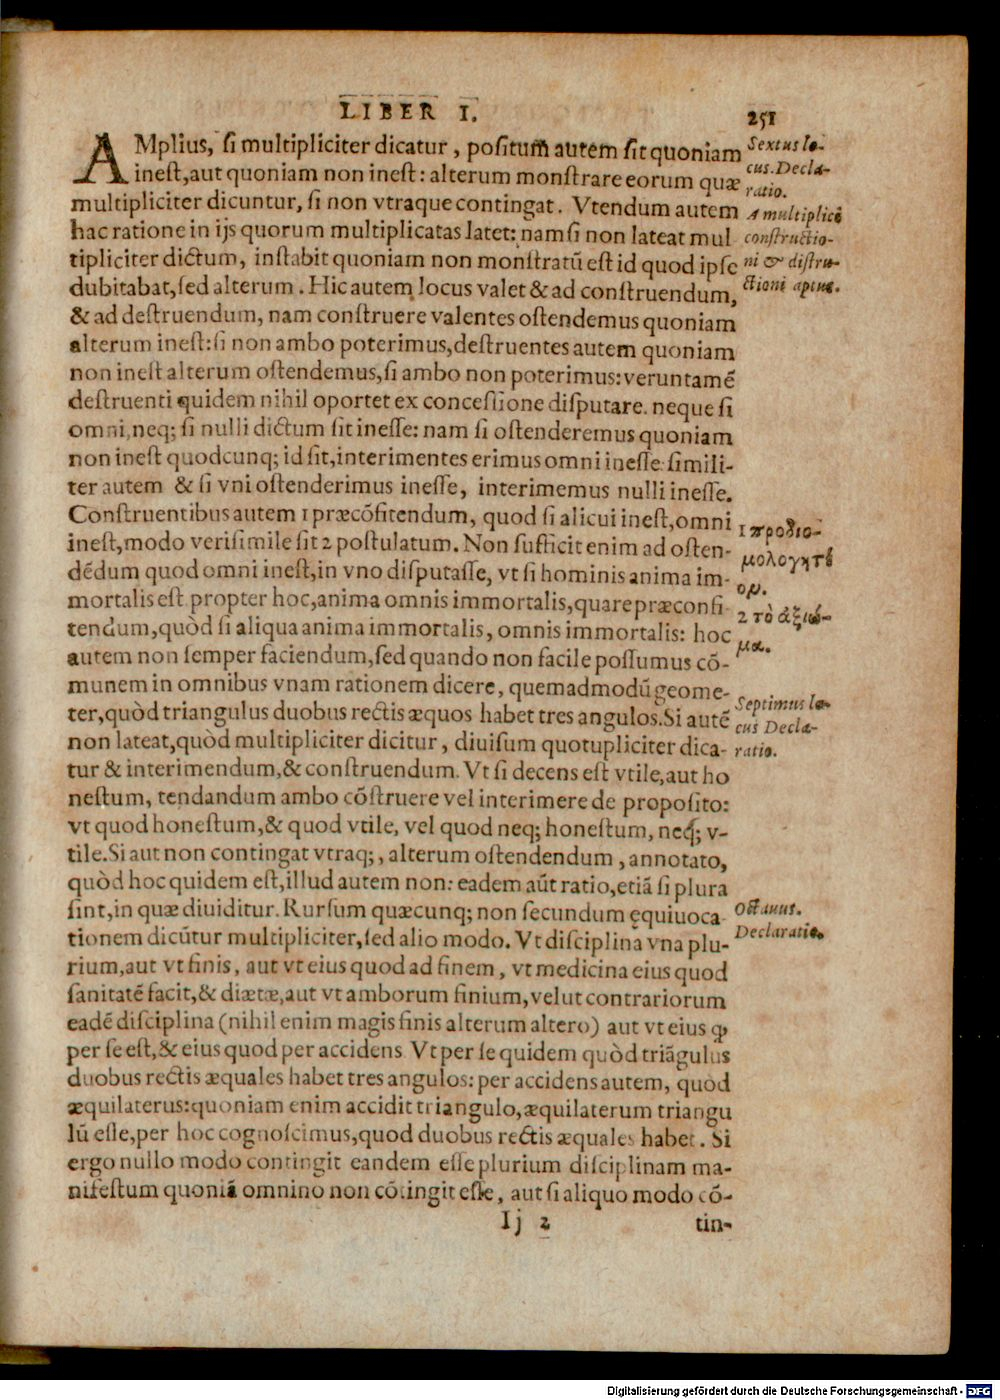 LIBER I.
251
AMplius, ſi multipliciter dicatur, poſitum autem ſit quoniam
ineſt, aut quoniam non ineſt: alterum monſtrare eorum quæ
multipliciter dicuntur, ſi non vtraque contingat. Vtendum autem
hac ratione in ijs quorum multiplicatas latet: nam ſi non lateat mul
tipliciter dictum, inſtabit quoniam non monſtratũ eſt id quod ipſe
dubitabat, ſed alterum. Hic autem locus valet & ad conſtruendum,
& ad deſtruendum, nam conſtruere valentes oſtendemus quoniam
alterum ineſt: ſi non ambo poterimus, deſtruentes autem quoniam
non ineſt alterum oſtendemus, ſi ambo non poterimus: veruntamẽ
deſtruenti quidem nihil oportet ex conceſſione diſputare. neque ſi
omni, neq; ſi nulli dictum ſit ineſſe: nam ſi oſtenderemus quoniam
non ineſt quodcunq; id ſit, interimentes erimus omni ineſſe. ſimili-
ter autem & ſi vni oſtenderimus ineſſe, interimemus nulli ineſſe.
Conſtruentibus autem 1 præcõfitendum, quod ſi alicui ineſt, omni
ineſt, modo veriſimile ſit 2 poſtulatum. Non ſufficit enim ad oſten-
dẽdum quod omni ineſt, in vno diſputaſſe, vt ſi hominis anima im-
mortalis eſt propter hoc, anima omnis immortalis, quare præconfi-
tendum, quòd ſi aliqua anima immortalis, omnis immortalis: hoc
autem non ſemper faciendum, ſed quando non facile poſſumus cõ-
munem in omnibus vnam rationem dicere, quemadmodũ geome-
ter, quòd triangulus duobus rectis æquos habet tres angulos. Si autẽ
non lateat, quòd multipliciter dicitur, diuiſum quotupliciter dica-
tur & interimendum, & conſtruendum. Vt ſi decens eſt vtile, aut ho
neſtum, tendandum ambo cõſtruere vel interimere de propoſito:
vt quod honeſtum, & quod vtile, vel quod neq; honeſtum, neq; v-
tile. Si aut non contingat vtraq;, alterum oſtendendum, annotato,
quòd hoc quidem eſt, illud autem non: eadem aũt ratio, etiã ſi plura
ſint, in quæ diuiditur. Rurſum quæcunq; non ſecundum ęquiuoca
tionem dicũtur multipliciter, ſed alio modo. Vt diſciplina vna plu-
rium, aut vt finis, aut vt eius quod ad finem, vt medicina eius quod
ſanitatẽ facit, & diætæ, aut vt amborum finium, velut contrariorum
eadẽ diſciplina (nihil enim magis finis alterum altero) aut vt eius ꝙ
per ſe eſt, & eius quod per accidens Vt per ſe quidem quòd triãgulus
duobus rectis æquales habet tres angulos: per accidens autem, quòd
æquilaterus: quoniam enim accidit triangulo, æquilaterum triangu
lũ eſſe, per hoc cognoſcimus, quod duobus rectis æquales habet. Si
ergo nullo modo contingit eandem eſſe plurium diſciplinam ma-
nifeſtum quoniã omnino non cõtingit eſſe, aut ſi aliquo modo cõ-
Ij 2
tin-
Sextus lo-
cus. Decla-
ratio.
A multiplici
conſtructio-
ni & diſtru-
ctioni aptus.
1 προδιο-
μολογητέ
ον.
2 τὸ ἀξίω-
μα.
Septimus lo-
cus Decla-
ratio.
Octauus.
Declaratio.
Digitalisierung gefördert durch die Deutsche Forschungsgemeinschaft - DFG